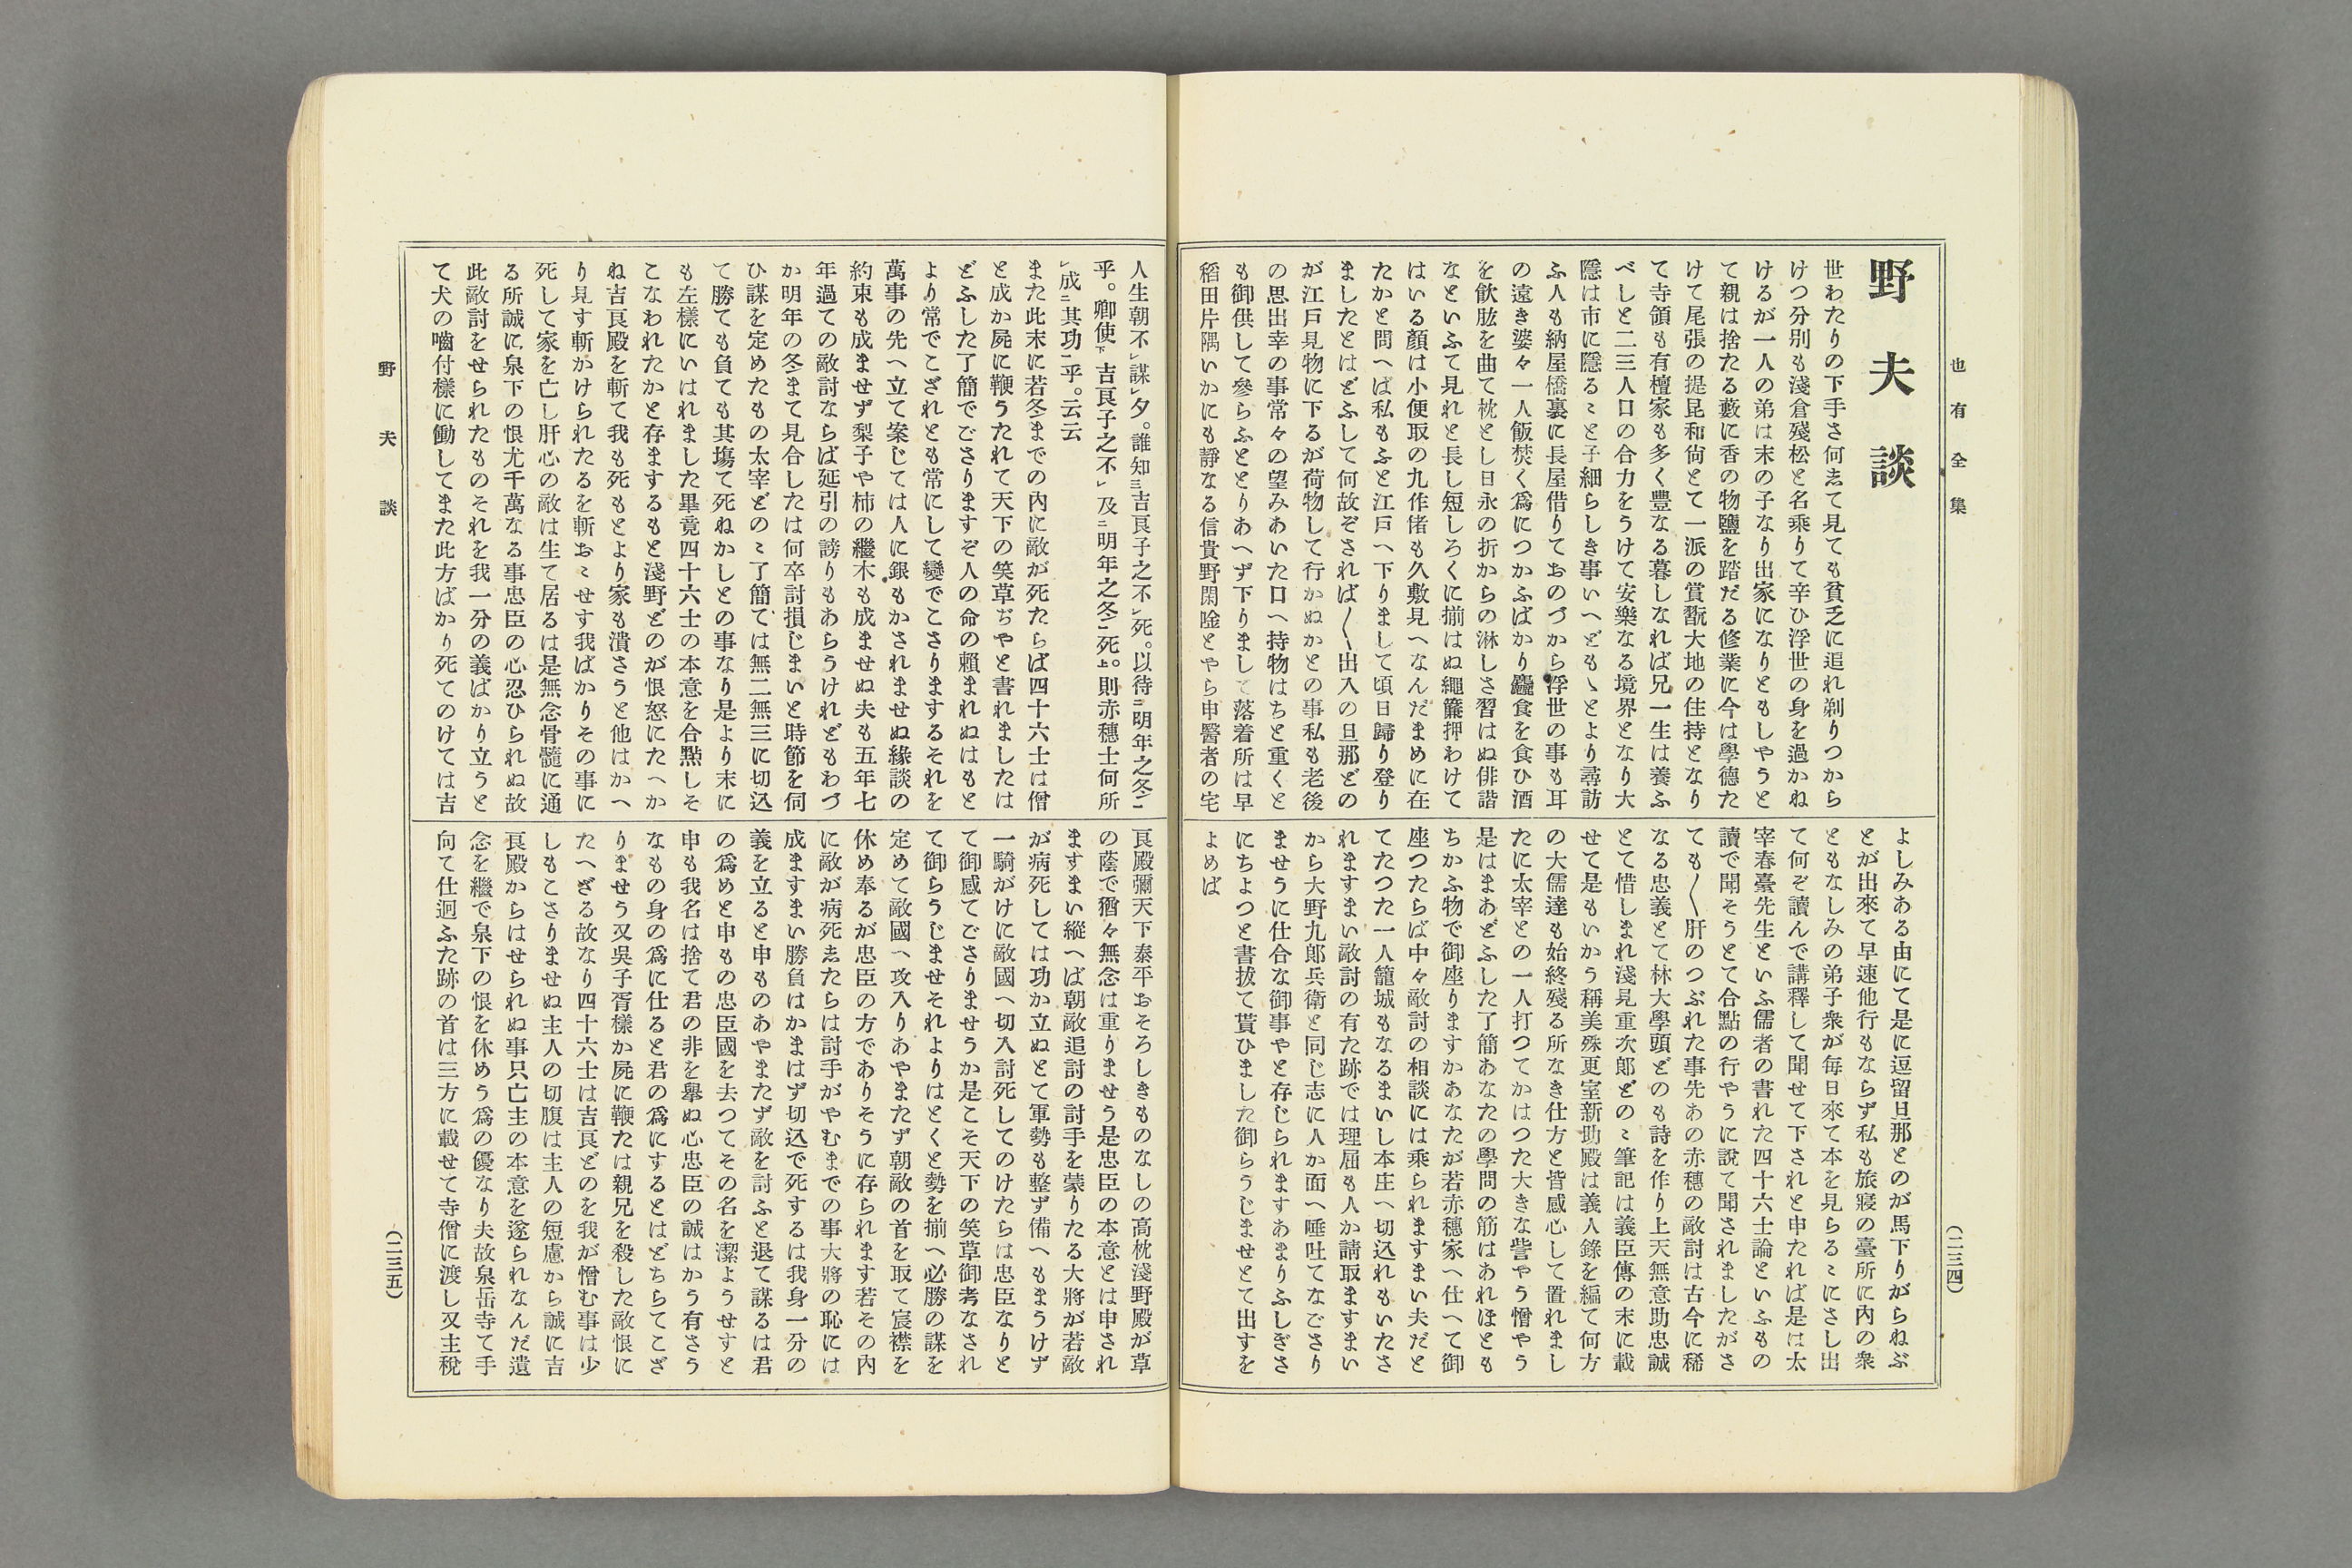 也有全集
(二三四)
野夫談
世わたりの下手さ何志て見ても貧乏に追れ剃りつから
けつ分別も淺倉殘松と名乘りて辛ひ浮世の身を過かね
けるが一人の弟は末の子なり出家になりともしやうと
て親は捨たる藪に香の物鹽を踏だる修業に今は學德た
けて尾張の提昆和尙とて一派の賞翫大地の住持となり
て寺領も有檀家も多く豐なる暮しなれば兄一生は養ふ
べしと二三人口の合力をうけて安樂なる境界となり大
隱は市に隱るゝと子細らしき事いへどもゝとより尋訪
ふ人も納屋橋裏に長屋借りておのづから浮世の事も耳
の遠き婆々一人飯焚く爲につかふばかり麤食を食ひ酒
を飮肱を曲て枕とし日永の折からの淋しさ習はぬ俳諧
なといふて見れと長し短しろくに揃はぬ繩簾押わけて
はいる顏は小便取の九作偖も久敷見へなんだまめに在
たかと問へば私もふと江戸へ下りまして頃日歸り登り
ましたとはどふして何故ぞされば〱出入の旦那どの
が江戸見物に下るが荷物して行かぬかとの事私も老後
の思出幸の事常々の望みあいた口へ持物はちと重くと
も御供して參らふととりあへず下りまして落着所は早
稻田片隅いかにも靜なる信貴野閑唫とやら申醫者の宅
よしみある由にて是に逗留旦那とのが馬下りがらねぶ
とが出來て早速他行もならず私も旅寢の臺所に內の衆
ともなしみの弟子衆が每日來て本を見らるゝにさし出
て何ぞ讀んで講釋して聞せて下されと申たれば是は太
宰春臺先生といふ儒者の書れた四十六士論といふもの
讀で聞そうとて合點の行やうに說て聞されましたがさ
ても〱肝のつぶれた事先あの赤穗の敵討は古今に稀
なる忠義とて林大學頭どのも詩を作り上天無意助忠誠
とて惜しまれ淺見重次郞どのゝ筆記は義臣傳の末に載
せて是もいかう稱美殊更室新助殿は義人錄を編て何方
の大儒達も始終殘る所なき仕方と皆感心して置れまし
たに太宰との一人打つてかはつた大きな訾やう憎やう
是はまあどふした了簡あなたの學問の筋はあれほとも
ちかふ物で御座りますかあなたが若赤穗家へ仕へて御
座つたらば中々敵討の相談には乘られますまい夫だと
てたつた一人籠城もなるまいし本庄へ切込れもいたさ
れますまい敵討の有た跡では理屈も人か請取ますまい
から大野九郞兵衞と同じ志に人か面へ唾吐てなござり
ませうに仕合な御事やと存じられますあまりふしぎさ
にちよつと書拔て貰ひました御らうじませとて出すを
よめば
人生朝不㆑謀㆑夕。誰知㆘吉良子之不㆑死。以待㆓明年之冬㆒
乎。卿使㆘吉良子之不㆑及㆓明年之冬㆒死㆖。則赤穗士何所
㆑成㆓其功㆒乎。云云
また此末に若冬までの內に敵が死たらば四十六士は僧
と成か屍に鞭うたれて天下の笑草ぢやと書れましたは
どふした了簡でござりますぞ人の命の賴まれぬはもと
より常でこざれとも常にして變でこさりまするそれを
萬事の先へ立て案じては人に銀もかされませぬ緣談の
約束も成ませず梨子や柿の繼木も成ませぬ夫も五年七
年過ての敵討ならば延引の謗りもあらうけれどもわづ
か明年の冬まて見合したは何卒討損じまいと時節を伺
ひ謀を定めたもの太宰どのゝ了簡ては無二無三に切込
て勝ても負ても其塲て死ねかしとの事なり是より末に
も左樣にいはれました畢竟四十六士の本意を合㸃しそ
こなわれたかと存まするもと淺野どのが恨怒にたへか
ね吉良殿を斬て我も死もとより家も潰さうと他はかへ
り見す斬かけられたるを斬おゝせす我ばかりその事に
死して家を亡し肝心の敵は生て居るは是無念骨髓に通
る所誠に泉下の恨尤千萬なる事忠臣の心忍ひられぬ故
此敵討をせられたものそれを我一分の義ばかり立うと
て犬の嚙付樣に働してまた此方ばかり死てのけては吉
良殿彌天下泰平おそろしきものなしの高枕淺野殿が草
の蔭で猶々無念は重りませう是忠臣の本意とは申され
ますまい縱へば朝敵追討の討手を蒙りたる大將が若敵
が病死しては功か立ぬとて軍勢も整ず備へもまうけず
一騎がけに敵國へ切入討死してのけたらは忠臣なりと
て御感てござりませうか是こそ天下の笑草御考なされ
て御らうじませそれよりはとくと勢を揃へ必勝の謀を
定めて敵國へ攻入りあやまたず朝敵の首を取て宸襟を
休め奉るが忠臣の方でありそうに存られます若その內
に敵が病死志たらは討手がやむまでの事大將の恥には
成ますまい勝負はかまはず切込で死するは我身一分の
義を立ると申ものあやまたず敵を討ふと退て謀るは君
の爲めと申もの忠臣國を去つてその名を潔ようせすと
申も我名は捨て君の非を擧ぬ心忠臣の誠はかう有さう
なもの身の爲に仕ると君の爲にするとはどちらてこざ
りませう又吳子胥樣か屍に鞭たは親兄を殺した敵恨に
たへざる故なり四十六士は吉良どのを我が憎む事は少
しもこさりませぬ主人の切腹は主人の短慮から誠に吉
良殿からはせられぬ事只亡主の本意を遂られなんだ遺
念を繼で泉下の恨を休めう爲の優なり夫故泉岳寺て手
向て仕廻ふた跡の首は三方に載せて寺僧に渡し又主稅
野夫談
(二三五)